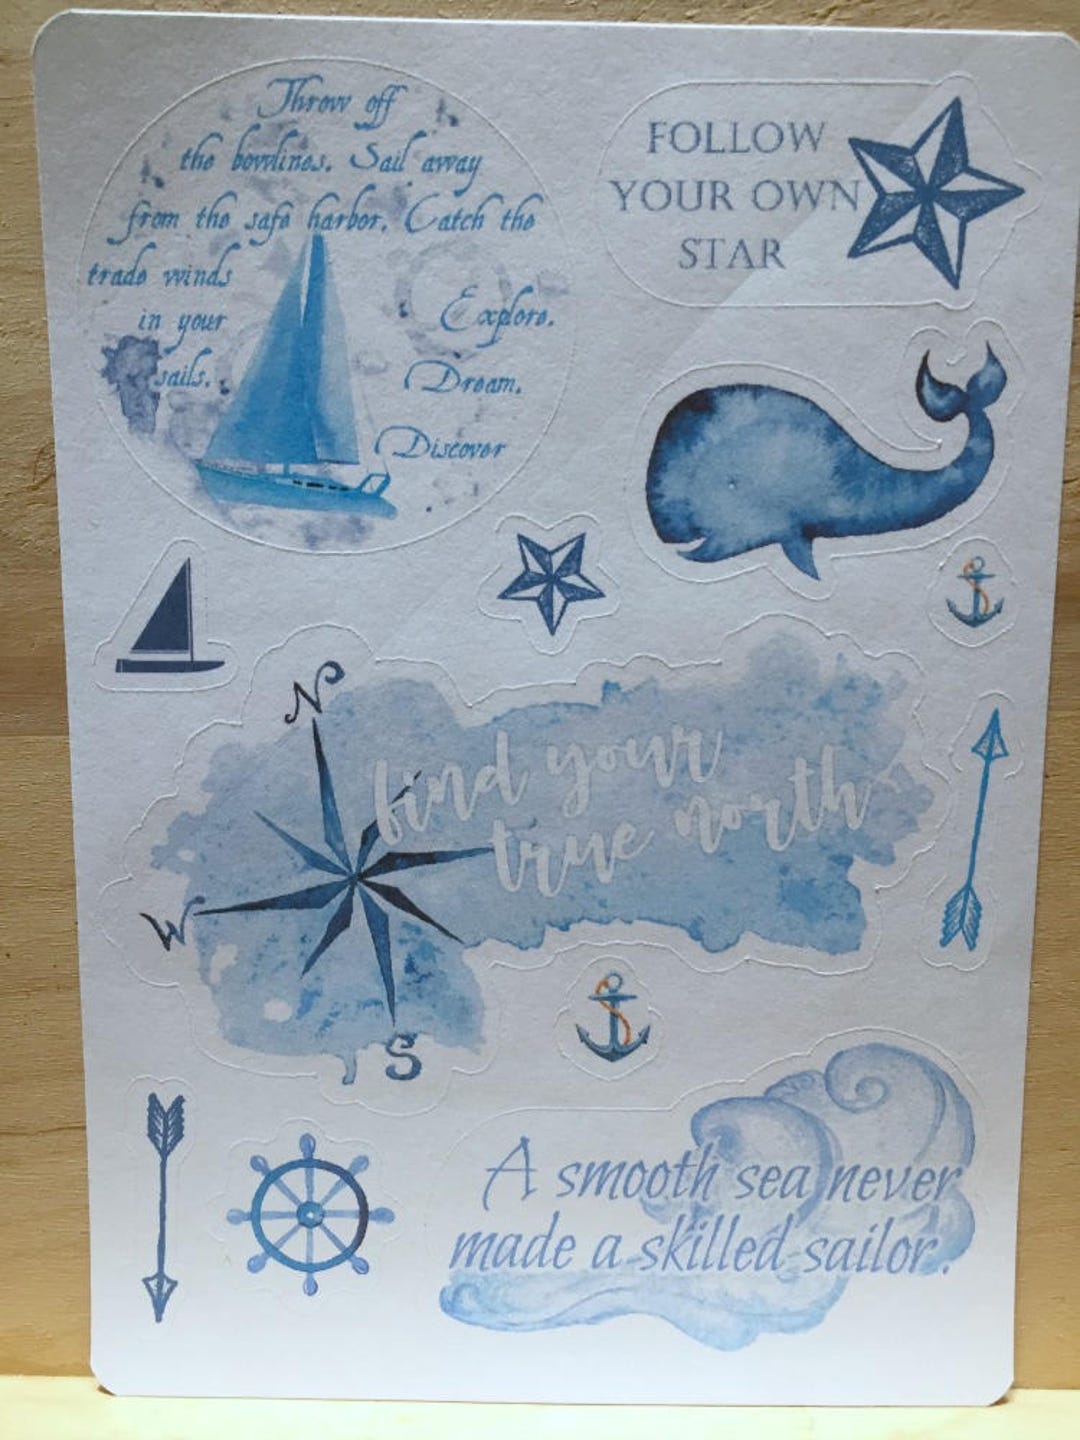 Throw off
the bowlines. Sail away
from the safe harbor. Catch the
trade winds
in your
sails.
Explore.
Dream.
Discover
FOLLOW
YOUR OWN
STAR
N
find your
true north
W
S
A smooth sea never
made a skilled sailor.